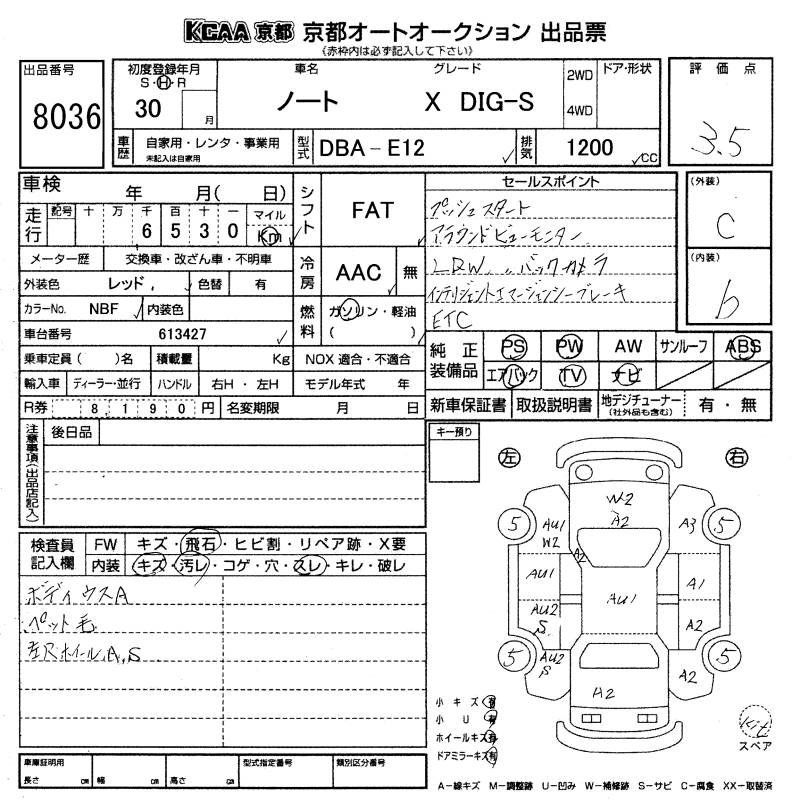 KCAA 京都 京都オートオークション 出品票
《赤枠内は必ず記入して下さい》
出品番号
8036
初度登録年月
S・H・R
30 月
車名
ノート
グレード
X DIG-S
2WD
4WD
ドア・形状
評価点
3.5
車歴
自家用・レンタ・事業用
未記入は自家用
型式
DBA-E12
排気
1200 cc
車検 年 月( 日)
走行
記号 十 万 千 百 十 一 マイル
6 5 3 0 Km
メーター歴 交換車・改ざん車・不明車
外装色 レッド 色替 有
カラーNo. NBF 内装色
車台番号 613427
乗車定員( )名 積載量 Kg
輸入車 ディーラー・並行 ハンドル 右H・左H
R券 8,190円 名変期限 月 日
シフト
FAT
冷房
AAC 無
燃料
ガソリン・軽油
( )
NOX 適合・不適合
モデル年式 年
セールスポイント
プッシュスタート
アラウンドビューモニター
LDW 〃バックカメラ
インテリジェントエマージェンシーブレーキ
ETC
(外装)
C
(内装)
b
純正装備品
PS PW AW サンルーフ ABS
エアバック TV ナビ
新車保証書 取扱説明書 地デジチューナー 有・無
(社外品も含む)
注意事項(出品店記入)
後日品
キー預り
左
右
検査員記入欄
FW キズ・飛石・ヒビ割・リペア跡・X要
内装 キズ・汚レ・コゲ・穴・スレ・キレ・破レ
ボディウスA
ペット毛
左Rホイール,A,S
W2
A2
5
AU1
W2
A2
A3
5
AU1
AU1
A1
AU2
S
A2
5
AU2
S
A2
A2
5
小キズ 有
小U 有
ホイールキズ 有
ドアミラーキズ 有
Kit
スペア
車庫証明用
長さ cm 幅 cm 高さ cm
型式指定番号
類別区分番号
A-線キズ M-調整跡 U-凹み W-補修跡 S-サビ C-腐食 XX-取替済